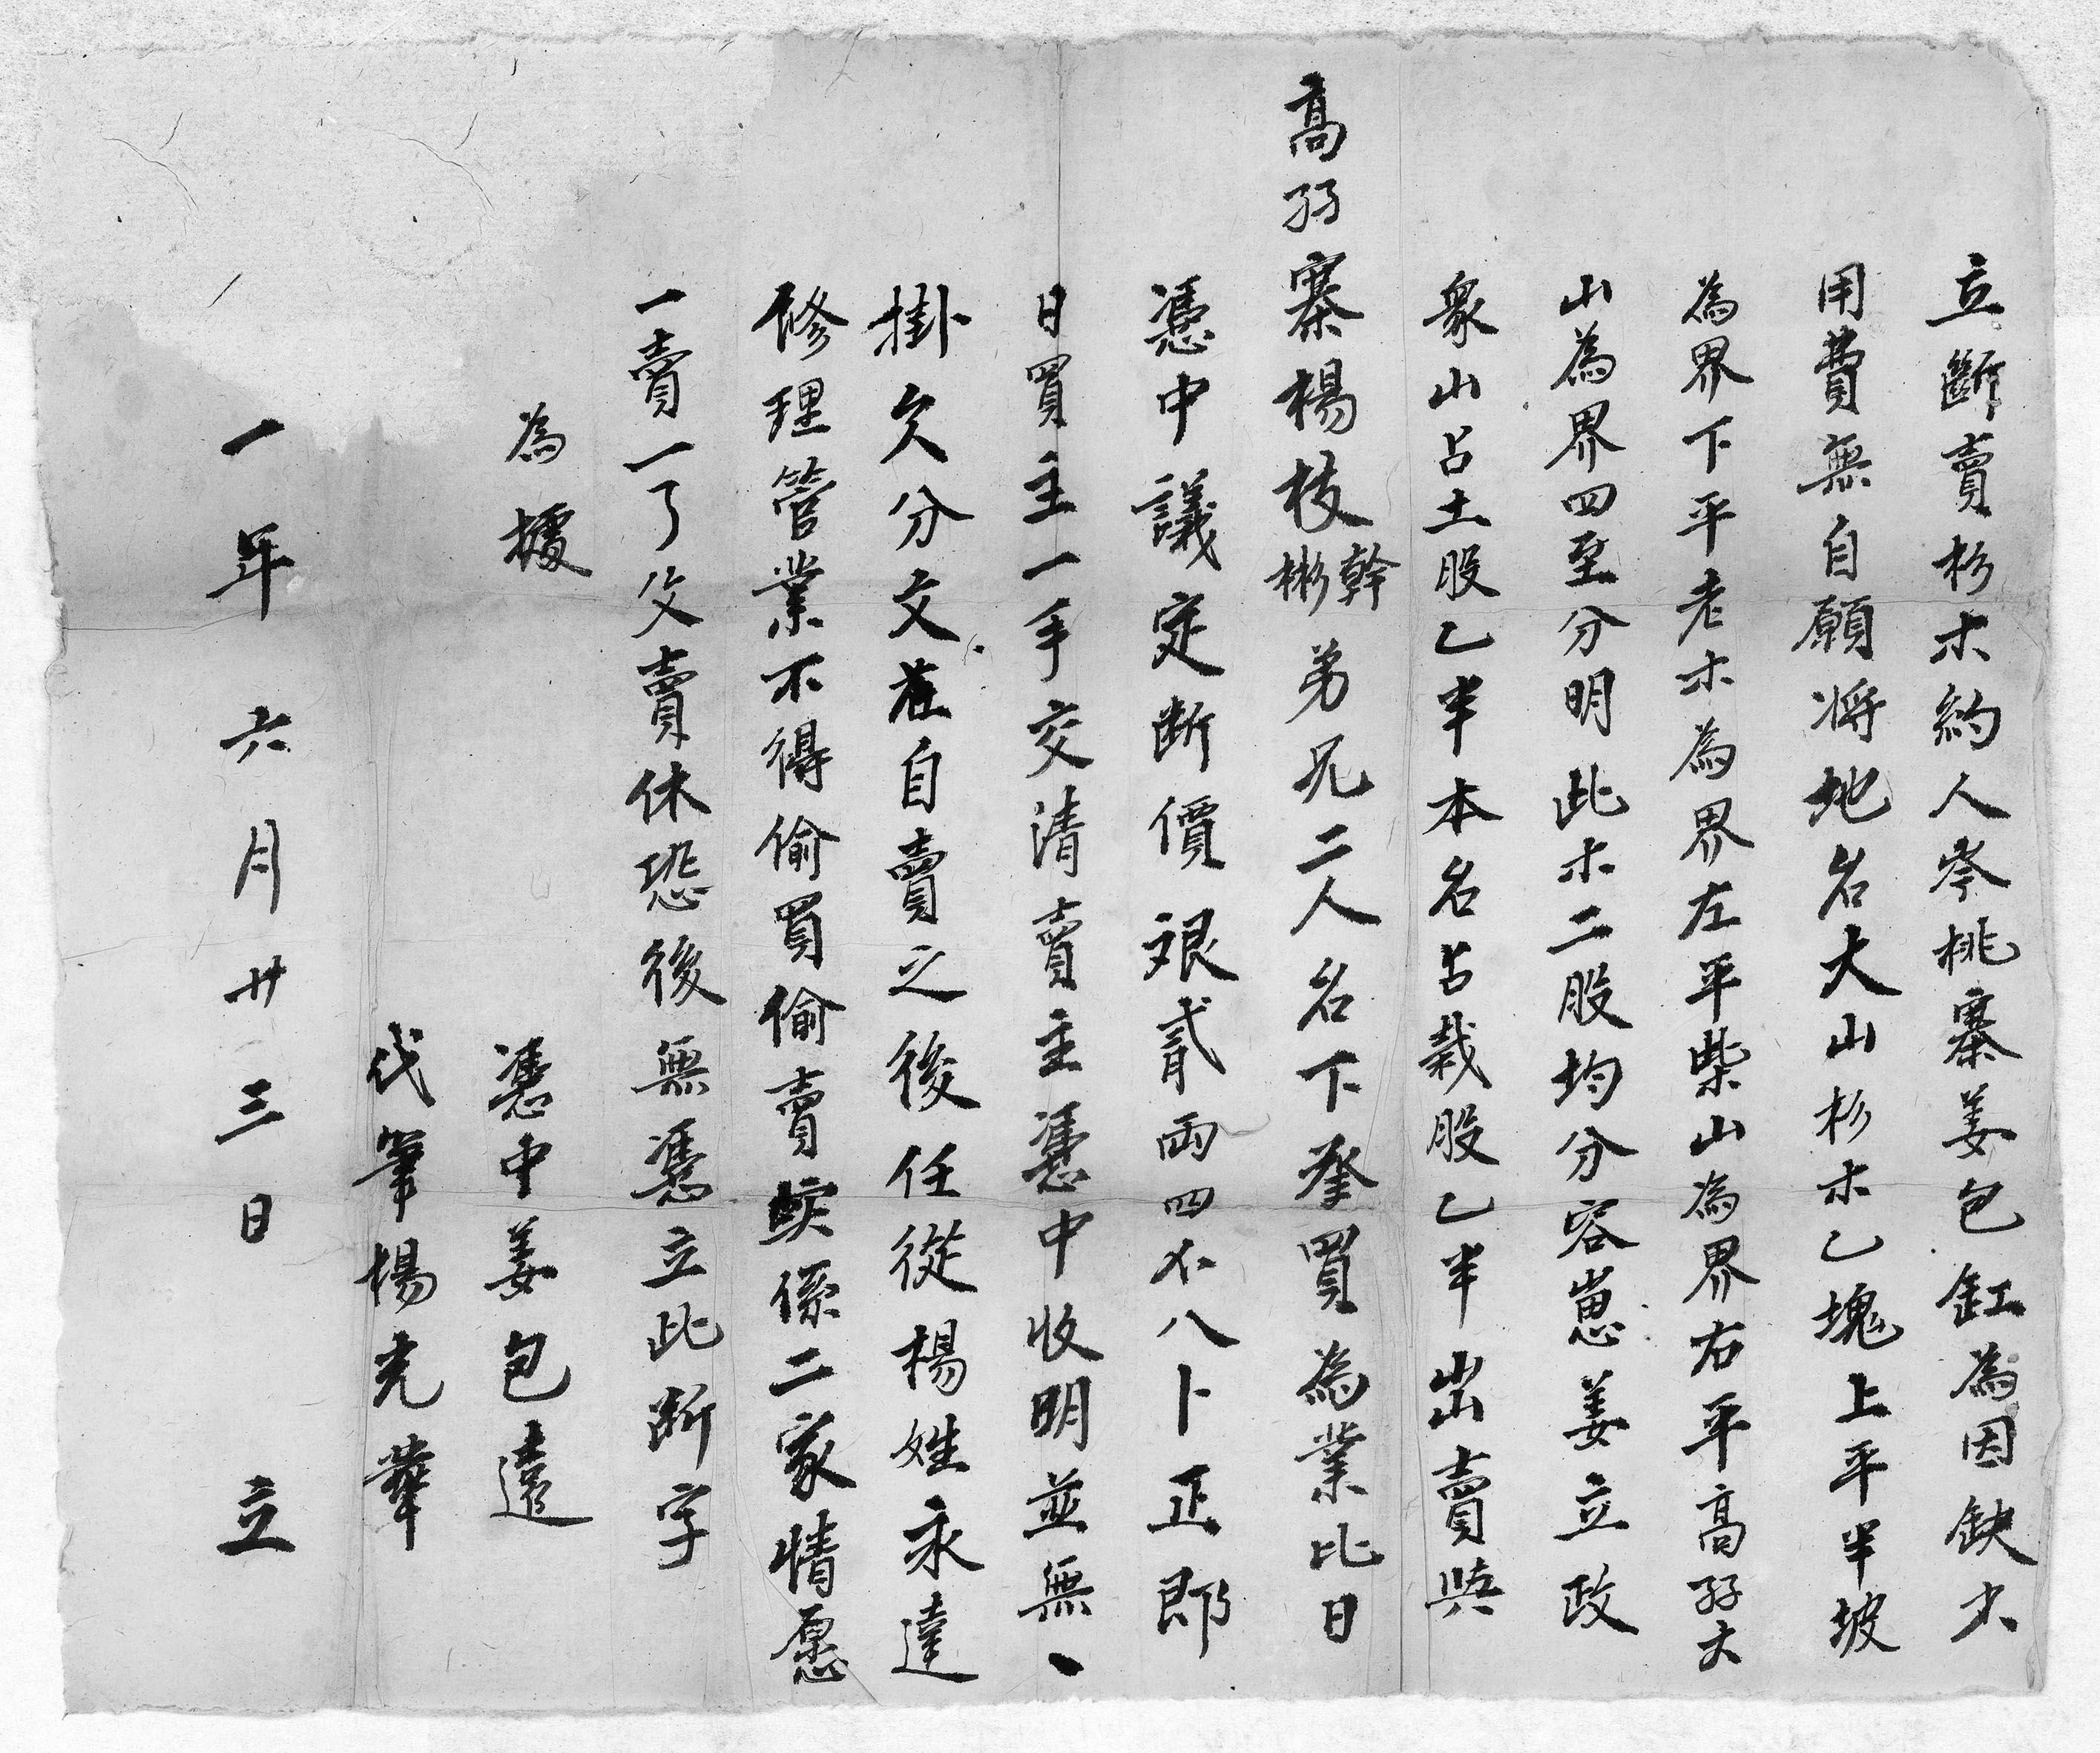 立斷賣杉木約人岑桃寨姜包缸為因缺少
用費無自願将地名大山杉木乙塊上平半坡
為界下平老木為界左平柴山為界右平高孖大
山為界四至分明此木二股均分容崽姜立政
衆山占土股乙半本名占栽股乙半出賣與
高孖寨楊枝幹彬弟兄二人名下承買為業比日
憑中議定断價艮貳両四不八卜正即
日買主一手交清賣主憑中收明並無、
掛欠分文在自賣之後任從楊姓永遠
修理管業不得偷買偷賣實係二家情愿
一賣一了父賣休恐後無憑立此断字
為據
憑中姜包遠
伐筆楊光華
一年六月廾三日立